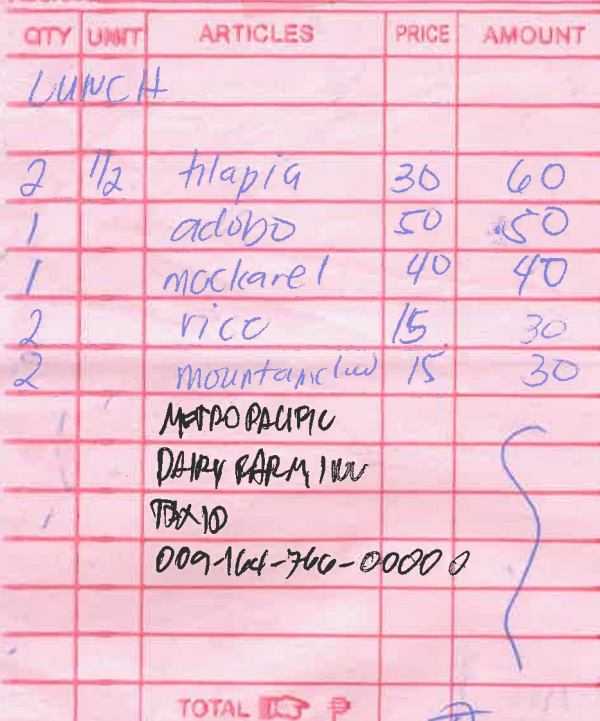 QTY UNIT ARTICLES PRICE AMOUNT
LUNCH
2 1/2 tilapia 30 60
1 adobo 50 50
1 mackarel 40 40
2 rice 15 30
2 mountain 15 30
METRO PACIFIC
DAIRY FARM, INC
TAX ID
009-164-766-00000
TOTAL ₱